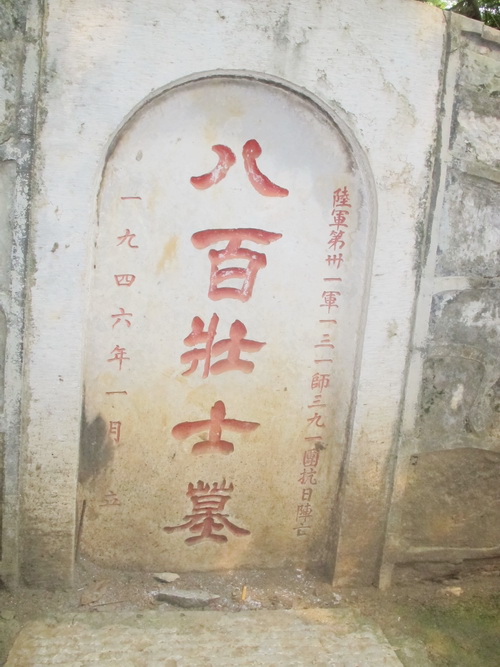 陸軍第卅一軍一三一師三九一團抗日陣亡
八百壯士墓
一九四六年一月 立